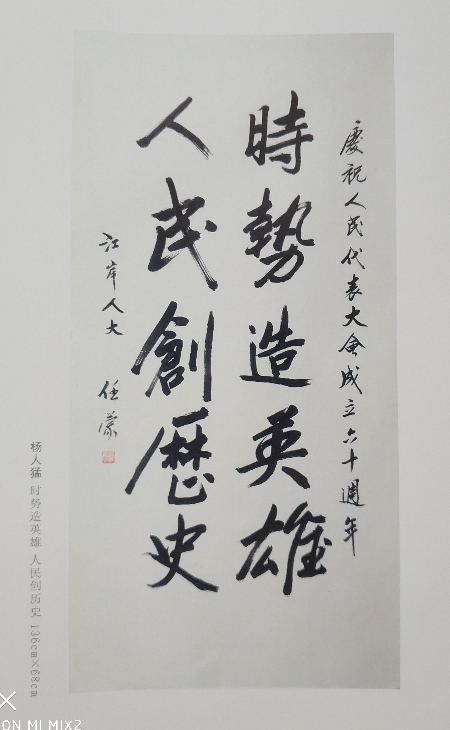 慶祝人民代表大會成立六十週年
時勢造英雄
人民創歷史
江岸人大 任蒙
杨人猛 时势造英雄 人民创历史 136cm×68cm
ON MI MIX2